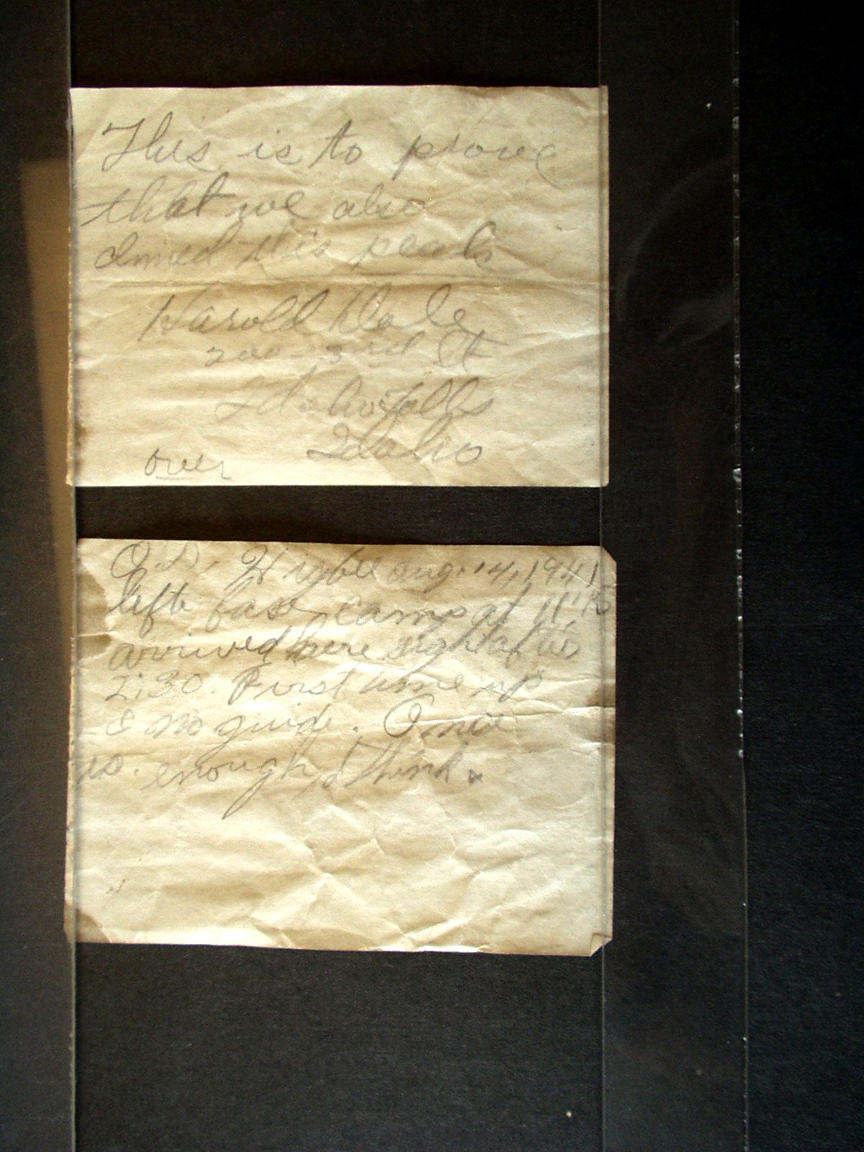 This is to prove
that we also
climed this peak
Harold Dale
200 - 3rd St
Idaho Falls
Idaho
over
Aug. 14, 1941
left base camp at 11:15
arrived here right after
2:30. First time up
& no guide. Once
is enough, I think.